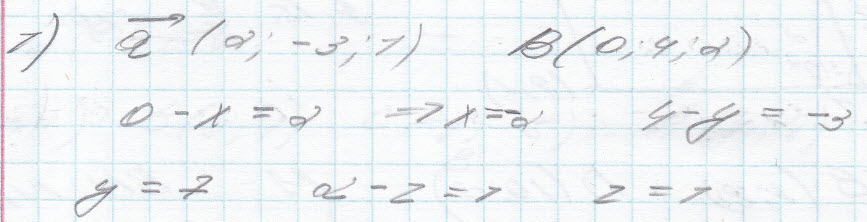 1) a⃗ (2; -3; 1) B(0; 4; 2)
0 - x = 2 => x = -2 4 - y = -3
y = 7 2 - z = 1 z = 1